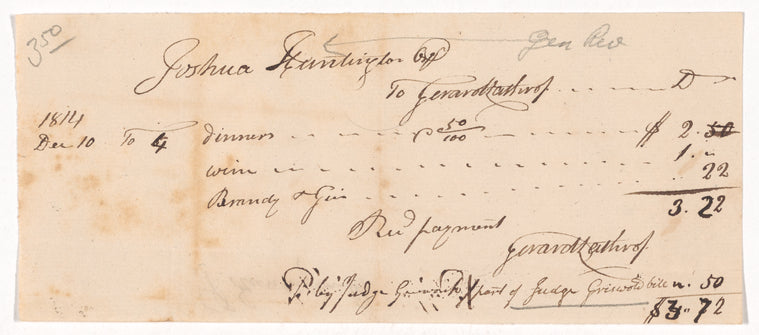 350
Gen Rev
Joshua Huntington Esqr
To Gerard Lathrop D
1814
Dec 10 To 4 dinners @ 50/100 $ 2. 50
wine 1. "
Brandy & Gin 22
3. 22
Recd payment
Gerard Lathrop
by Judge part of Judge Griswold bill ". 50
$3" 72